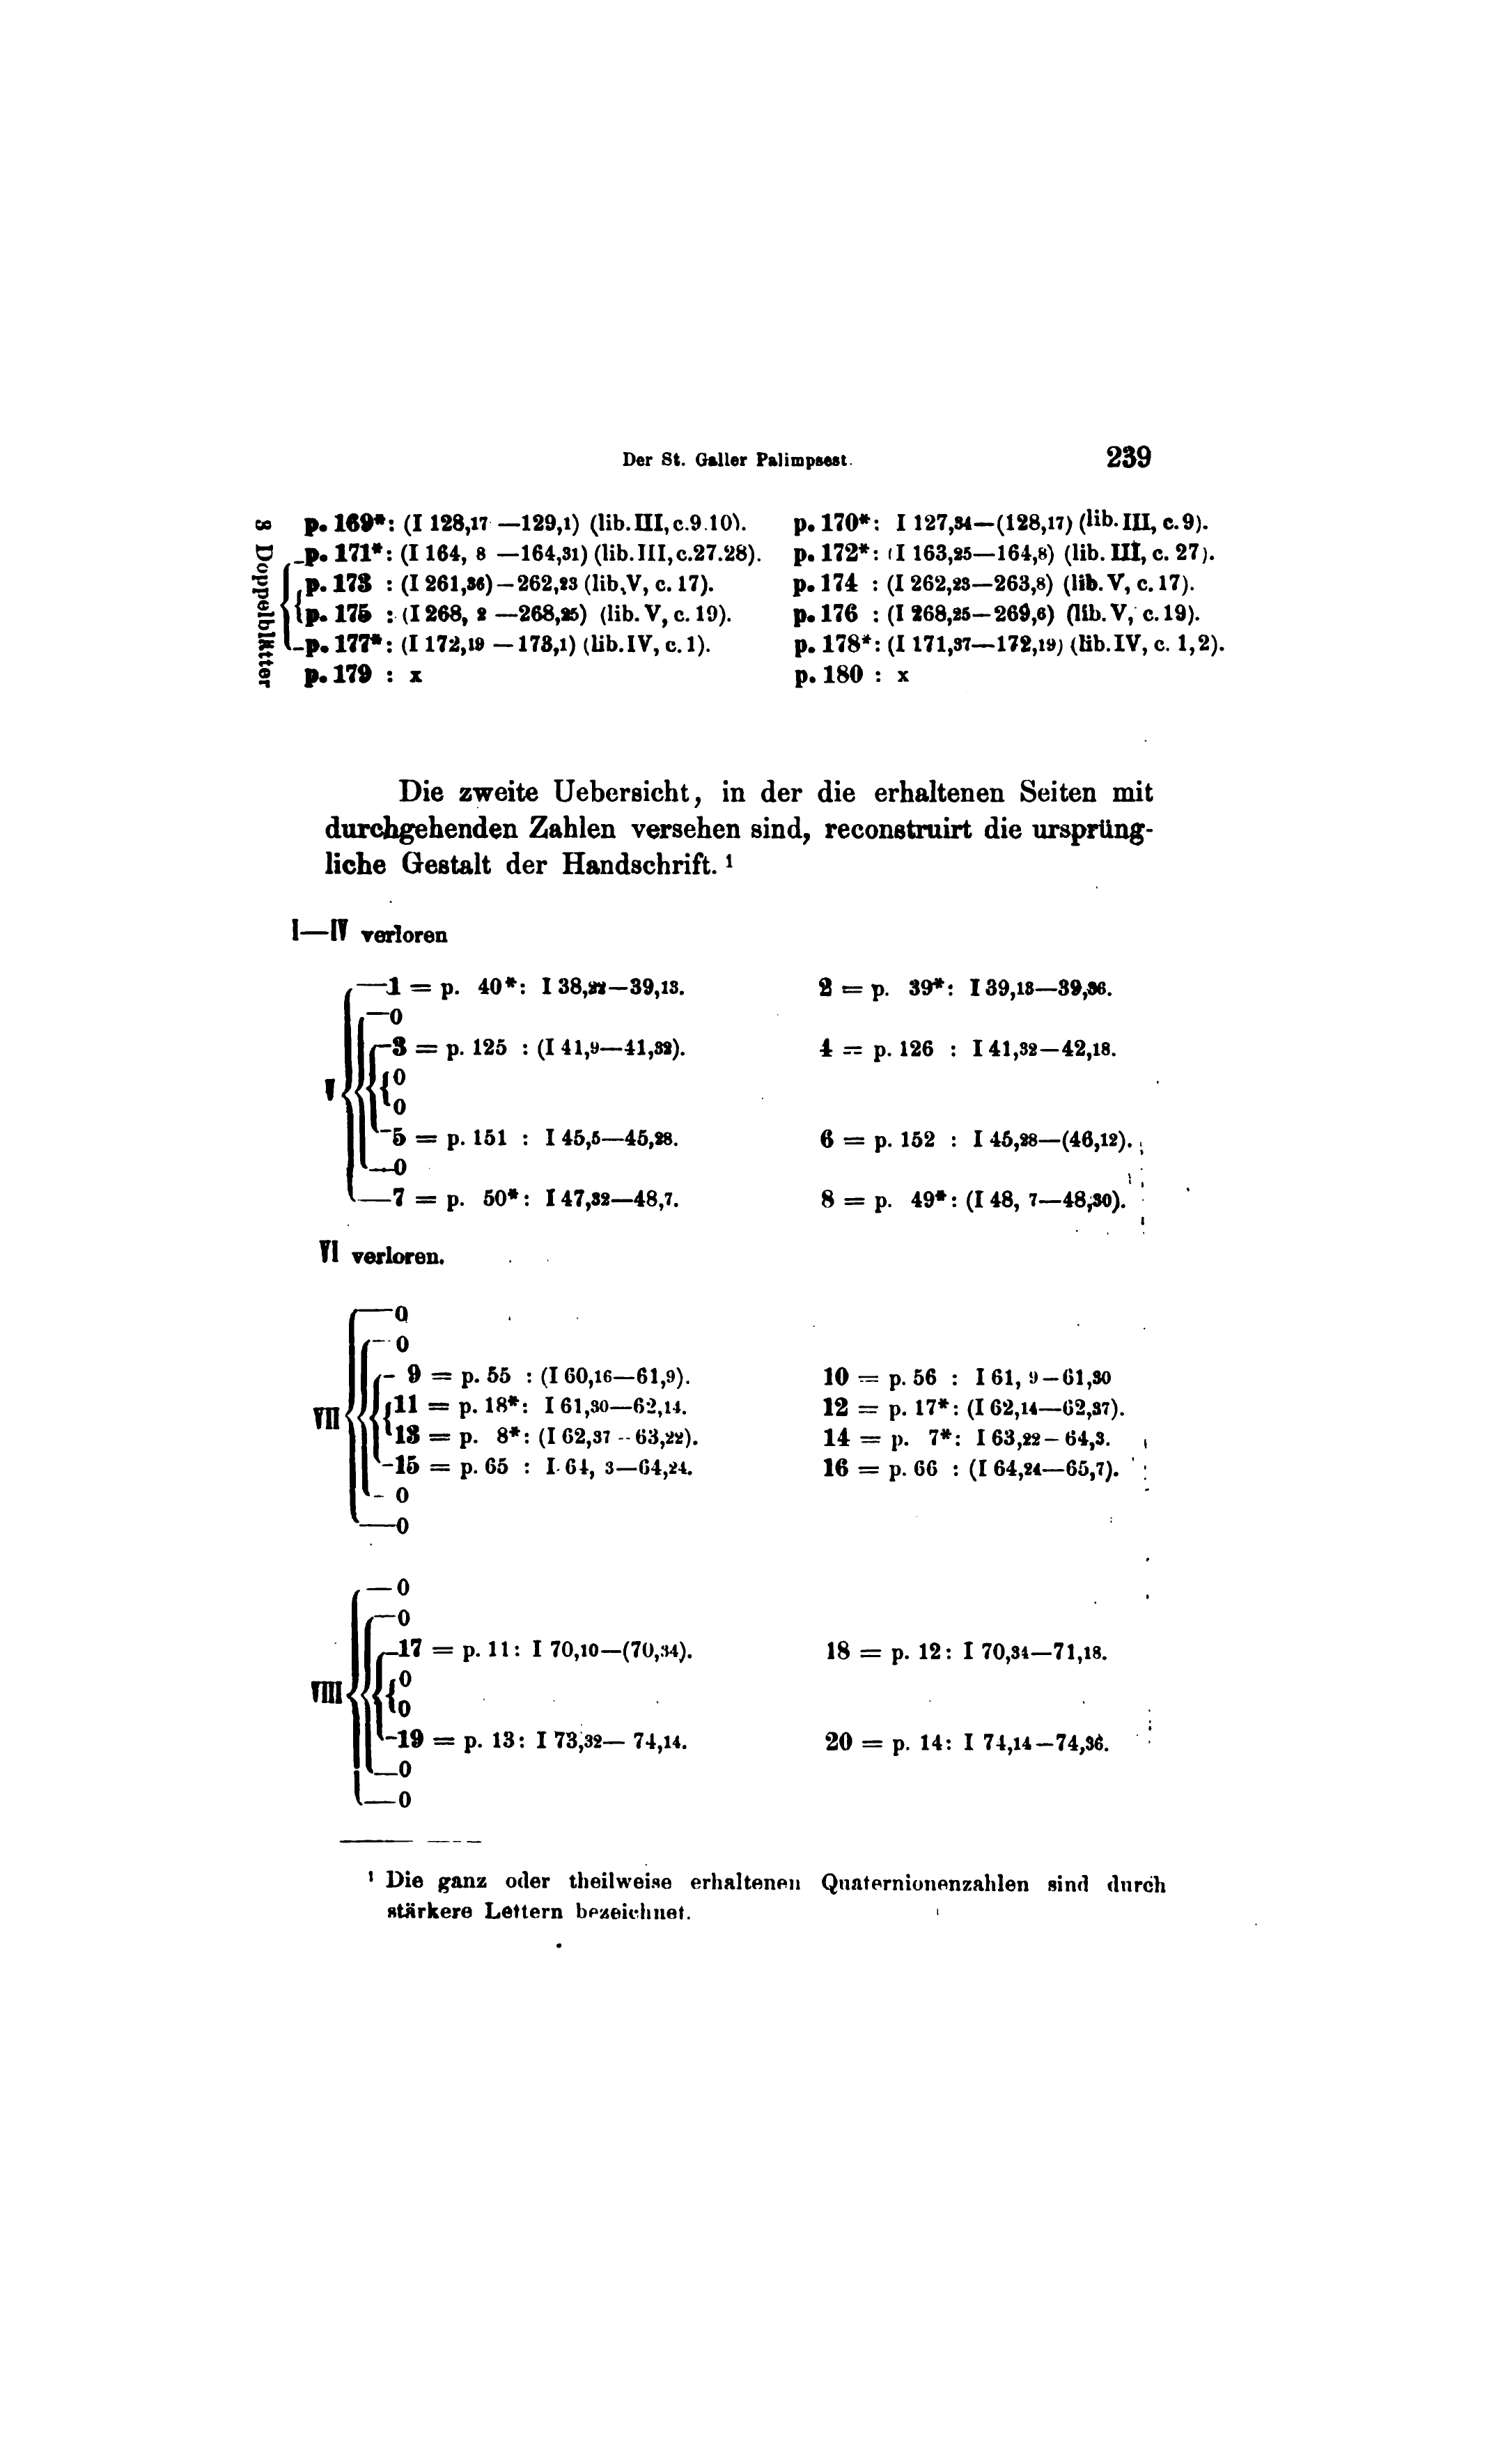 Der St. Galler Palimpsest. 239
3 Doppelblätter
p. 169*: (I 128,17 —129,1) (lib. III, c. 9.10). p. 170*: I 127,34—(128,17) (lib. III, c. 9).
p. 171*: (I 164, 8 —164,31) (lib. III, c. 27.28). p. 172*: (I 163,25—164,8) (lib. III, c. 27).
p. 173 : (I 261,36)—262,23 (lib. V, c. 17). p. 174 : (I 262,23—263,8) (lib. V, c. 17).
p. 175 : (I 268, 2 —268,25) (lib. V, c. 19). p. 176 : (I 268,25—269,6) (lib. V, c. 19).
p. 177*: (I 172,19 —173,1) (lib. IV, c. 1). p. 178*: (I 171,37—172,19) (lib. IV, c. 1,2).
p. 179 : x p. 180 : x
Die zweite Uebersicht, in der die erhaltenen Seiten mit
durchgehenden Zahlen versehen sind, reconstruirt die ursprüng-
liche Gestalt der Handschrift. ¹
I—IV verloren
1 = p. 40*: I 38,22—39,13. 2 = p. 39*: I 39,13—39,36.
0
3 = p. 125 : (I 41,9—41,32). 4 = p. 126 : I 41,32—42,18.
0
V
0
5 = p. 151 : I 45,5—45,28. 6 = p. 152 : I 45,28—(46,12).
0
7 = p. 50*: I 47,32—48,7. 8 = p. 49*: (I 48, 7—48,30).
VI verloren.
0
0
9 = p. 55 : (I 60,16—61,9). 10 = p. 56 : I 61, 9—61,30
11 = p. 18*: I 61,30—62,14. 12 = p. 17*: (I 62,14—62,37).
VII
13 = p. 8*: (I 62,37—63,22). 14 = p. 7*: I 63,22—64,3.
15 = p. 65 : I 64, 3—64,24. 16 = p. 66 : (I 64,24—65,7).
0
0
0
0
17 = p. 11: I 70,10—(70,34). 18 = p. 12: I 70,34—71,18.
0
VIII
0
19 = p. 13: I 73,32— 74,14. 20 = p. 14: I 74,14—74,36.
0
0
¹ Die ganz oder theilweise erhaltenen Quaternionenzahlen sind durch
stärkere Lettern bezeichnet.